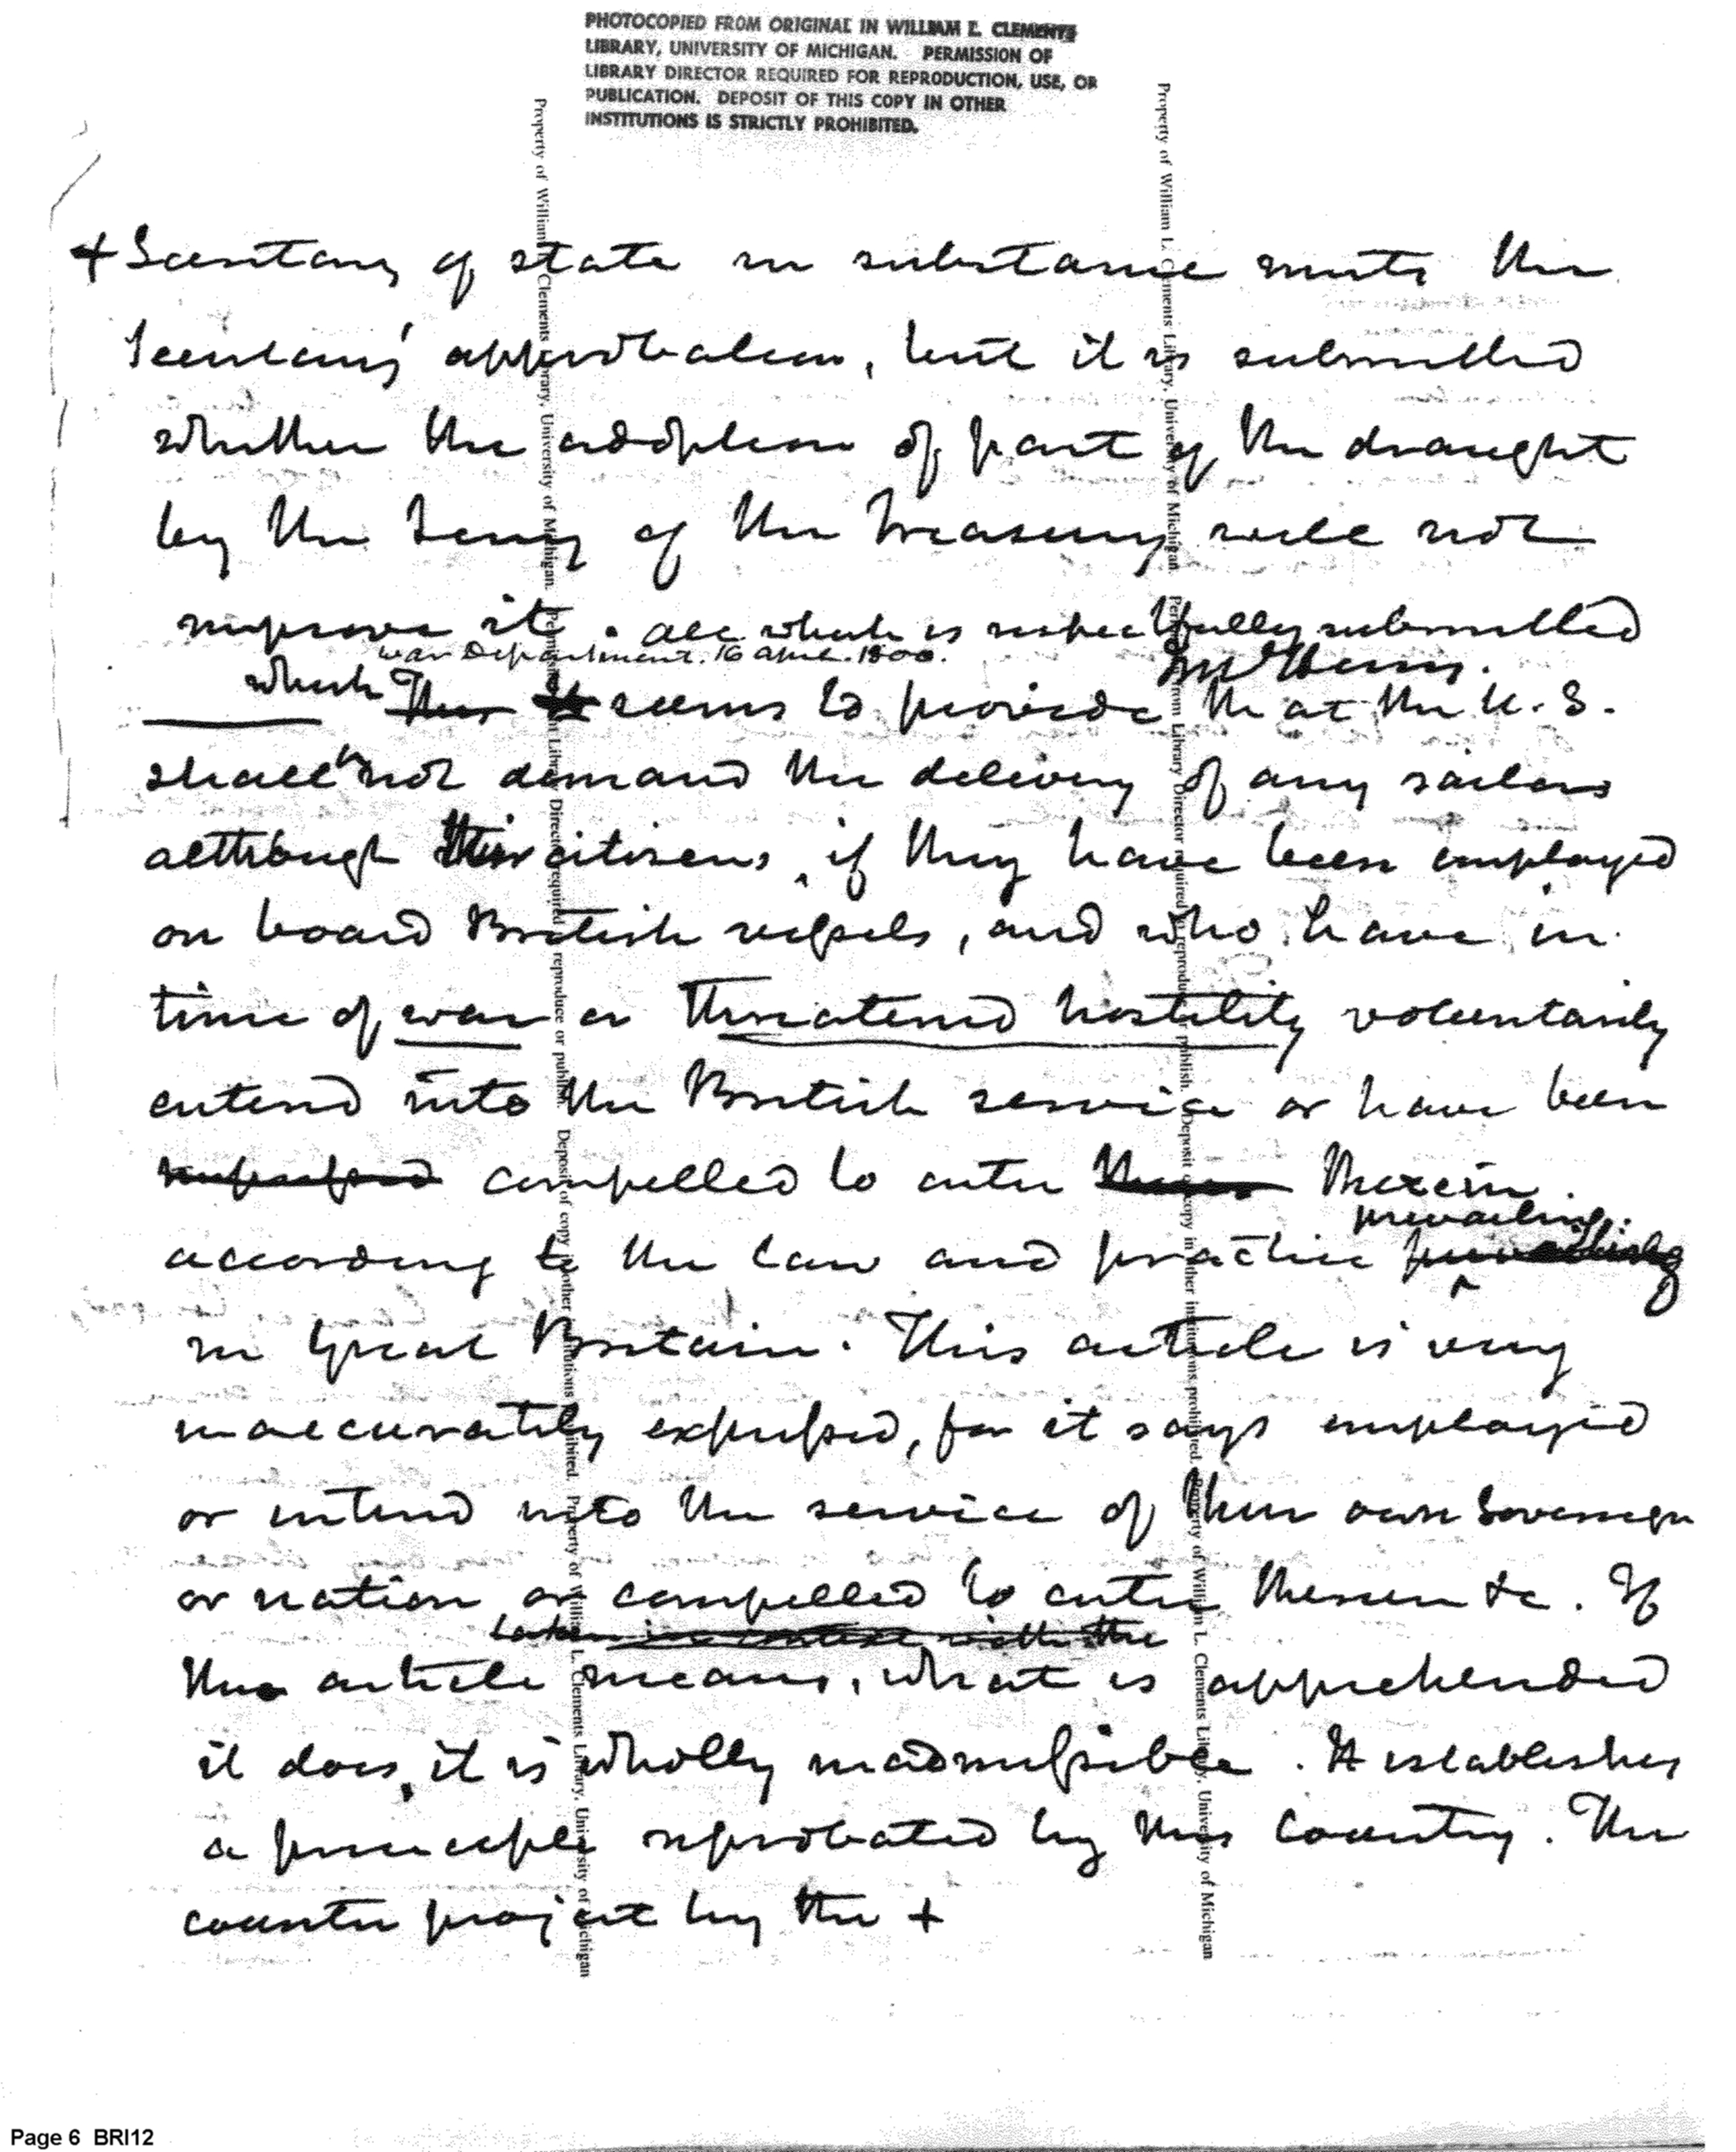 PHOTOCOPIED FROM ORIGINAL IN WILLIAM L. CLEMENTS
LIBRARY, UNIVERSITY OF MICHIGAN. PERMISSION OF
LIBRARY DIRECTOR REQUIRED FOR REPRODUCTION, USE, OR
PUBLICATION. DEPOSIT OF THIS COPY IN OTHER
INSTITUTIONS IS STRICTLY PROHIBITED.
+ Secretary of state in substance meets the
Secretarys' approbation, but it is submitted
whether the adoption of part of the draught
by the Secry of the Treasury will not
improve it. all which is respectfully submitted
War Department. 16 april. 1800.
McHenry.
which This it seems to provide that the U. S.
shall not demand the delivery of any sailors
although their citizens, if they have been employed
on board British vessels, and who have in
time of war or threatened hostility voluntarily
entered into the British service or have been
impressed compelled to enter therein.
prevailing:
according to the law and practice prevailing
in Great Britain. This article is very
inaccurately expressed, for it says employed
or entered into the service of their own Sovereign
or nation or compelled to enter therein &c. If
taken in context with the
this article means, what is apprehended
it does, it is wholly inadmissible. It establishes
a principle reprobated by this country. The
counter project by the +
Property of William L. Clements Library, University of Michigan. Permission from Library Director required to reproduce or publish. Deposit of copy in other institutions prohibited. Property of William L. Clements Library, University of Michigan
Property of William L. Clements Library, University of Michigan. Permission from Library Director required to reproduce or publish. Deposit of copy in other institutions prohibited. Property of William L. Clements Library, University of Michigan
Page 6 BRI12